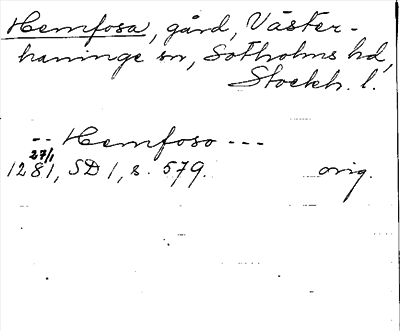 Hemfosa, gård, Väster-
haninge sn, Sotholms hd,
Stockh. l.
-- Hemfoso ---
27/1
1281, SD 1, s. 579. orig.